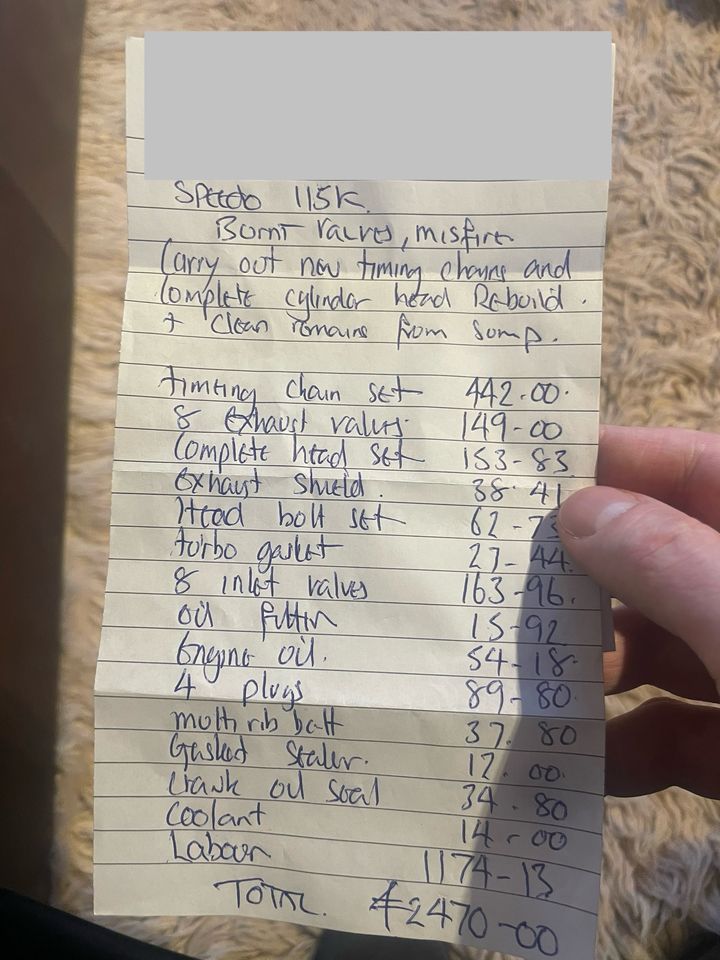 Speedo 115K.
Burnt valves, misfire
Carry out new timing chains and
Complete cylinder head Rebuild.
+ Clean remains from sump.
timing chain set 442.00.
8 exhaust valves. 149-00
Complete head set 153-83
exhaust shield. 38.41
Head bolt set 62-73
turbo gasket 27-44.
8 inlet valves 163-96.
oil filter 15-92
Engine oil. 54-18
4 plugs 89-80.
multi rib belt 37.80
Gasket sealer. 12.00.
Crank oil seal 34.80
Coolant 14-00
Labour 1174-13
TOTAL. £2470-00